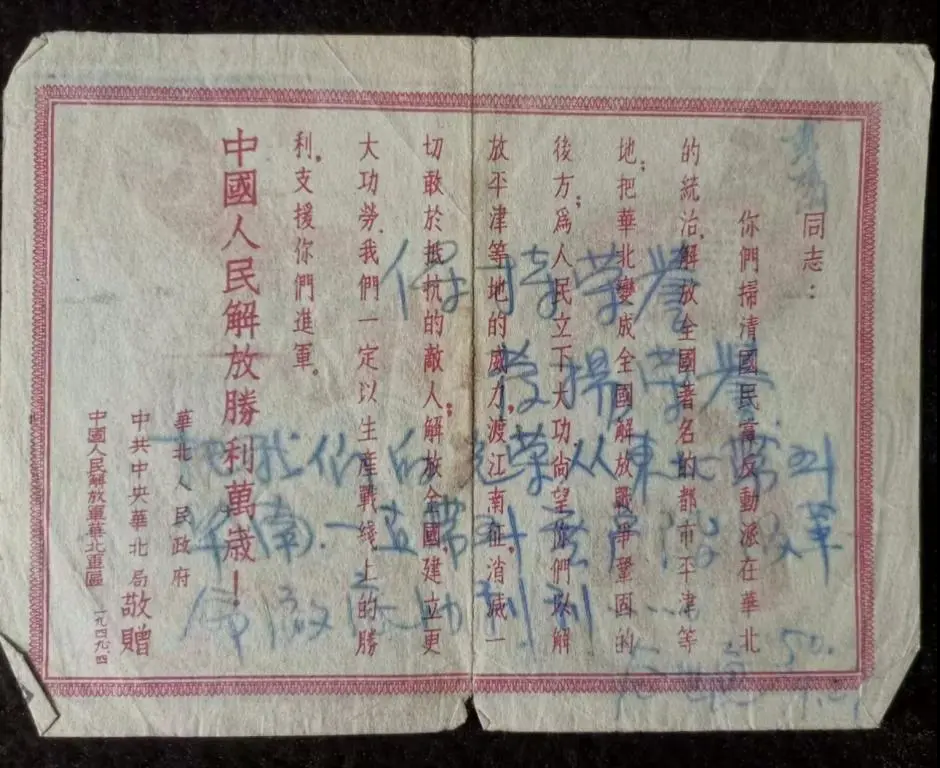 同志：
你們掃清國民黨反動派在華北
的統治,解放全國著名的都市平津等
地;把華北變成全國解放戰爭鞏固的
後方;爲人民立下大功,尚望你們以解
放平津等地的威力,渡江南征,消滅一
切敢於抵抗的敵人;解放全國,建立更
大功勞.我們一定以生產戰綫上的勝
利,支援你們進軍。
中國人民解放勝利萬歲！
華北人民政府
中共中央華北局
敬贈
中國人民解放軍華北軍區
一九四九.四
保持荣誉
發揚荣誉
把我们的光荣从東北帶到
南一直帶到
50.